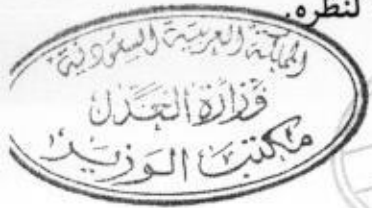 لنظره.
المملكة العربية السعودية
وزارة العدل
مكتب الوزير